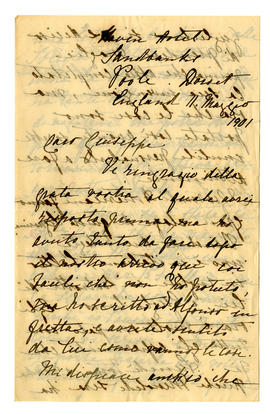 Haven Hotel
Sandbanks
Poole Dorset
England 11. Maggio
1901
Caro Giuseppe
Vi ringrazio della
grata vostra al quale avrei
risposto prima ma ho
avuto tanto da fare dopo
il nostro arrivo qui coi
che non ho potuto
ma ho scritto ad Alfonso in
fretta e avrete sentito
da lui come vanno le cose.
Mi dispiace anche che